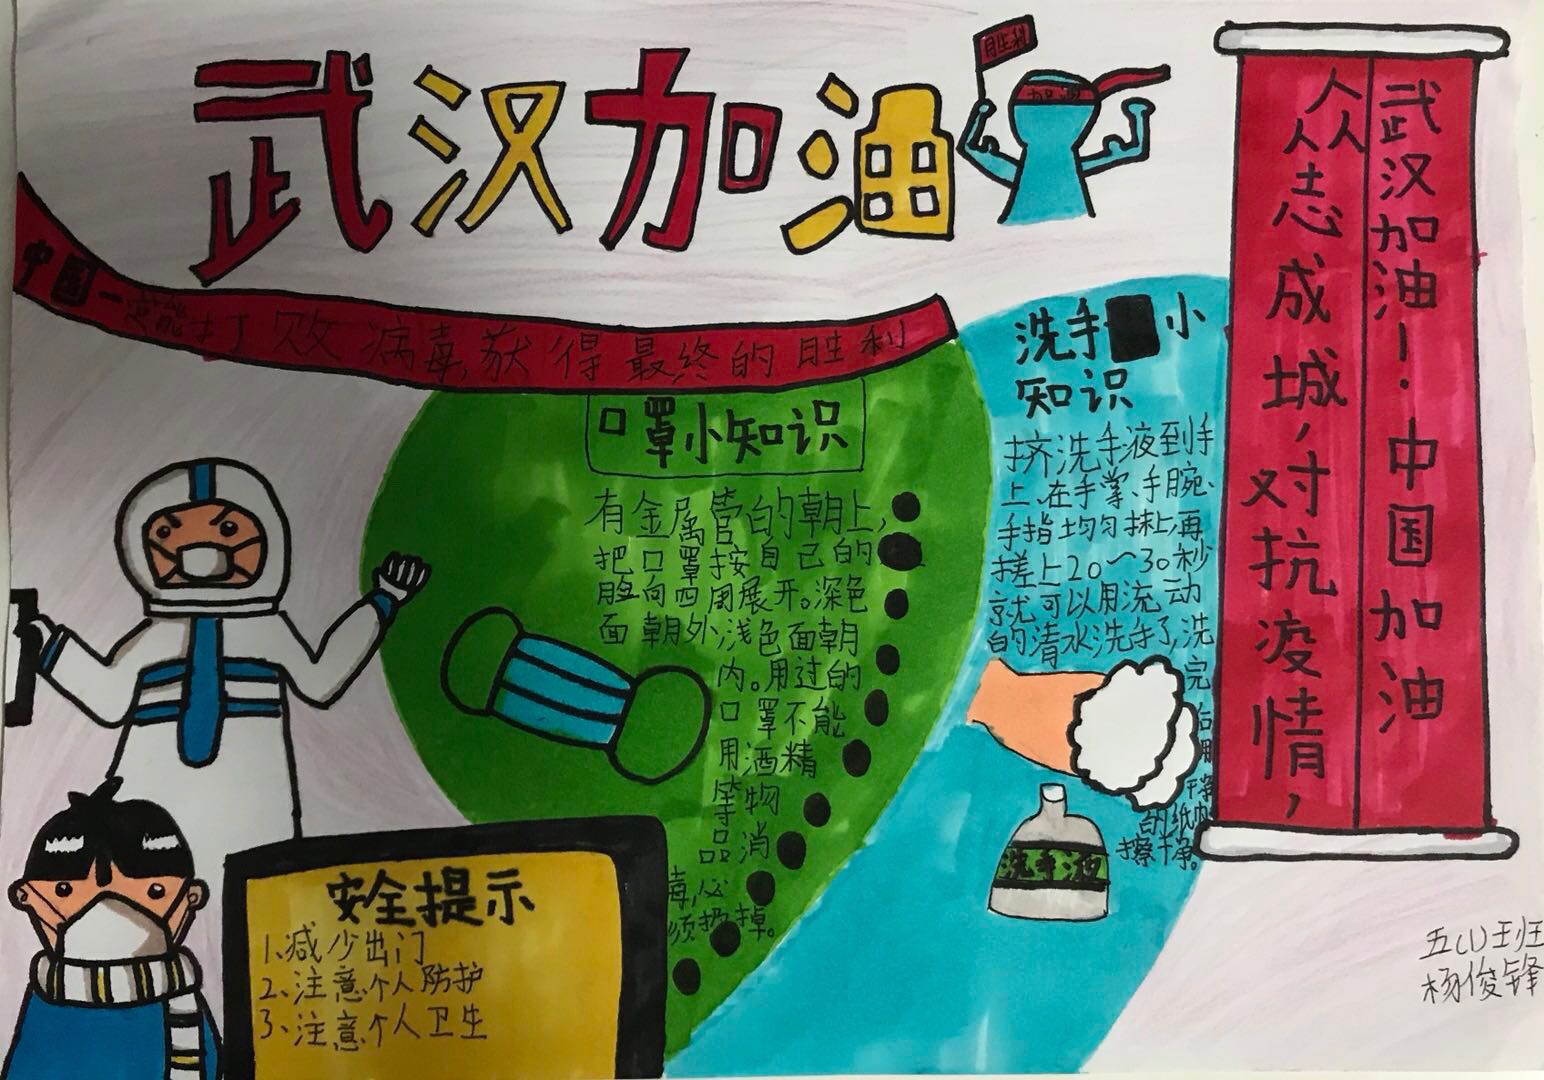 武汉加油
胜利
加油
中国一定能打败病毒,获得最终的胜利
口罩小知识
有金属管的朝上,
把口罩按自己的
脸向四周展开。深色
面朝外浅色面朝
内。用过的
口罩不能
用酒精
等物
品消
毒,必
须扔掉。
洗手小
知识
挤洗手液到手
上、在手掌、手腕、
手指均匀抹上,再
搓上20~30秒
就可以用流动
的清水洗手了,洗
完后用
干净
的纸巾
擦干净。
洗手液
武汉加油!·中国加油
众志成城,对抗疫情,
安全提示
1、减少出门
2、注意个人防护
3、注意个人卫生
五(1)班
杨俊锋